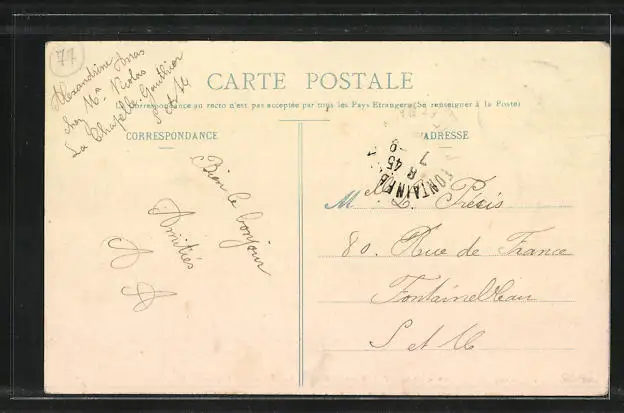 77
Alexandrine Arras
chez Mª Nicolas
La Chapelle Gauthier
S et M
CARTE POSTALE
La Correspondance au recto n'est pas acceptée par tous les Pays Etrangers (Se renseigner à la Poste)
CORRESPONDANCE
ADRESSE
Bien le bonjour
Amitiés
A A
FONTAINEB
8 45
7
9
Melle L. Précis
80. Rue de France
Fontainebleau
S et M